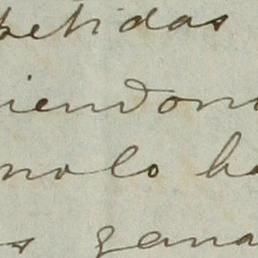 petidas
iendon
no lo ha
s gana